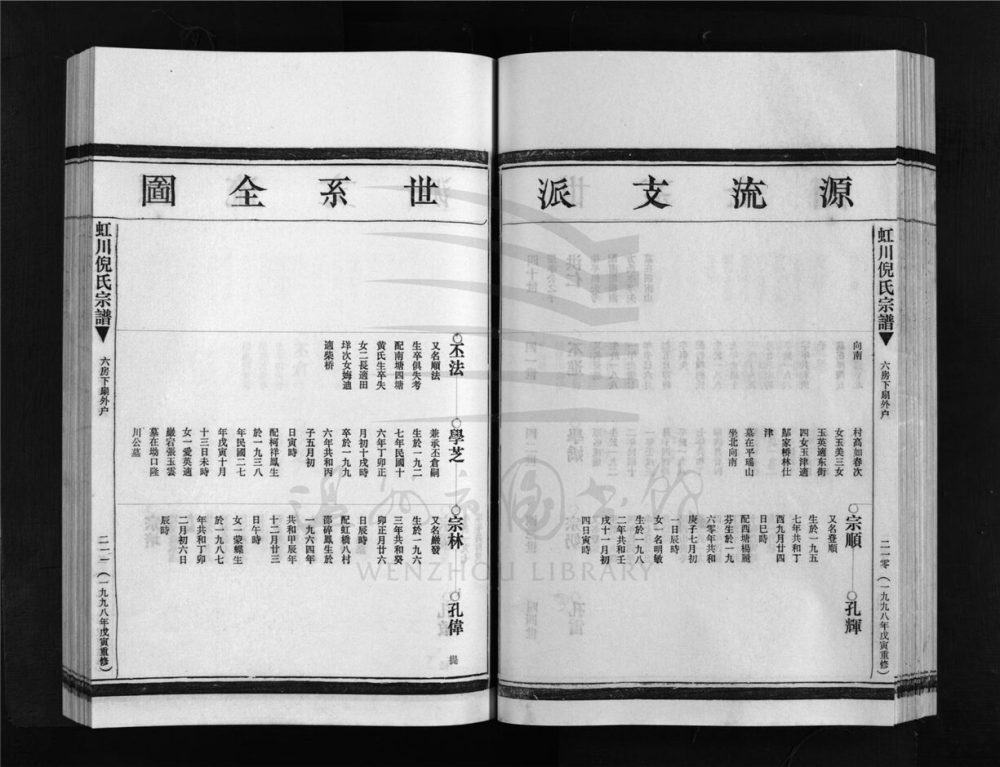 源流支派
虹川倪氏宗譜
六房下扇外户
二一零（一九九八年戊寅重修）
向南
村高如春次
女玉美三女
玉英適东街
四女玉津適
鄔家桥林仕
津
墓在平瑶山
坐北向南
宗順
又名登順
生於一九五
七年共和丁
酉九月廿四
日巳時
配西塘楊麗
芬生於一九
六零年共和
庚子七月初
一日辰時
女一名明敏
生於一九八
二年共和壬
戌十一月初
四日寅時
孔輝
世系全圖
丕法
又名順法
生卒俱失考
配南塘四塘
黄氏生卒失
女二長適田
垟次女姆迪
適柴桥
學芝
兼承丕倉嗣
生於一九一二
七年民國十
六年丁卯正
月初十戌時
卒於一九九
六年共和丙
子五月初
日寅時
配柯祥鳳生
於一九三八
年民國二七
年戊寅十月
十三日未時
女一愛英適
嚴宕張玉雲
墓在塲口隆
川公墓
宗林
又名嚴發
生於一九六
三年共和癸
卯正月廿六
日辰時
配虹橋八村
邵碎鳳生於
一九六四年
共和甲辰年
十二月廿三
日午時
女一蒙蝶生
於一九八七
年共和丁卯
二月初六日
辰時
孔偉
虹川倪氏宗譜
六房下扇外户
二一一（一九九八年戊寅重修）
WENZHOU LIBRARY